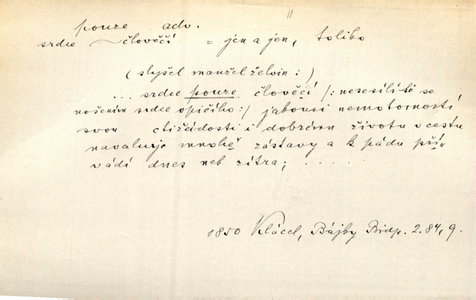 pouze adv.
srdce ~ člověčí = jen a jen, toliko
(slyšel manžel želvin:)
... srdce pouze člověčí /: nesesílí-li se
nošením srdce opičího :/ jakousi nemotorností
svou ctižádosti i dobrému životu v cestu
navaluje mnohé zástavy a k pádu při
vádí dnes neb zítra; .....
1850 Klácel, Bájky Bidp. 2.84,9.